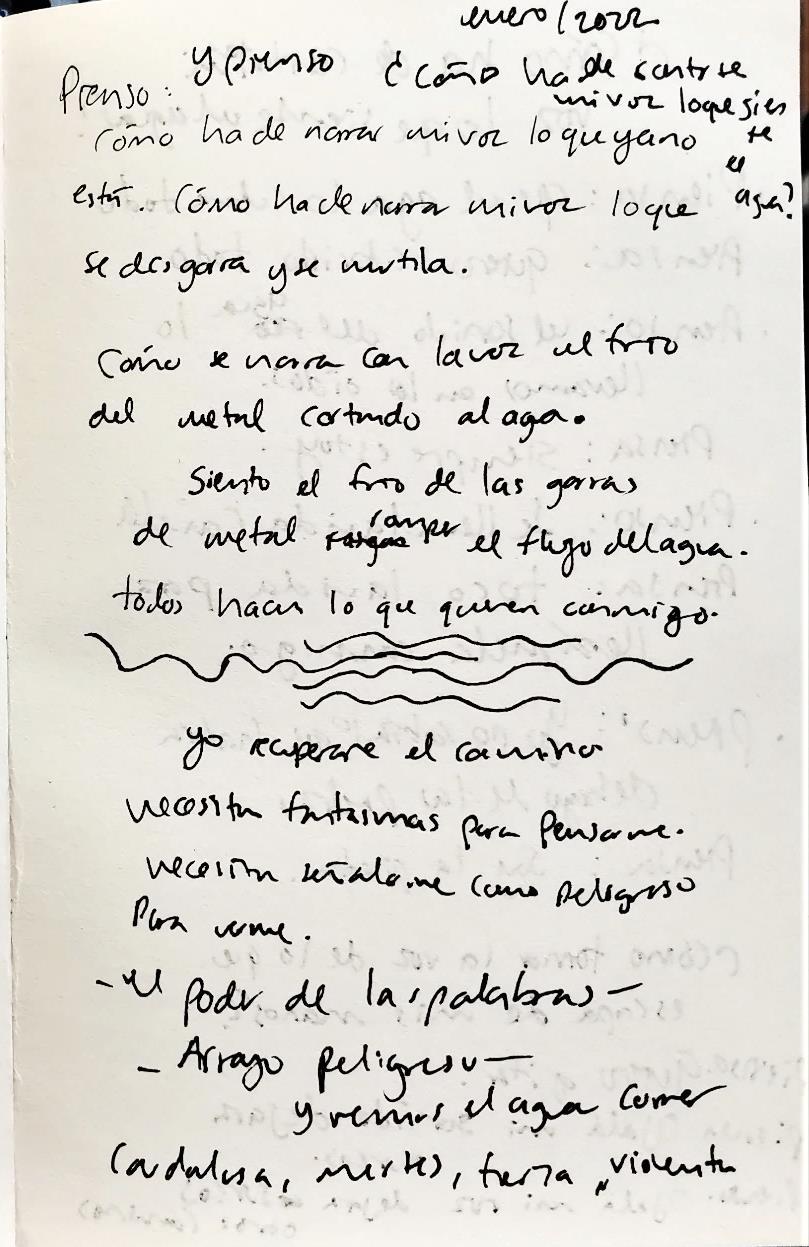 enero/2022
Pienso: y pienso ¿Cómo ha de sentirse
mi voz lo que
Cómo ha de narrar mi voz lo que ya no
está. Cómo ha de narrar mi voz lo que el agua?
se desgarra y se mutila.
Cómo se narra con la voz el frío
del metal cortando al agua.
Siento el frío de las garras
de metal romper el flujo del agua.
todos hacen lo que quieren conmigo.
yo recuperaré el camino
necesitan fantasmas para pensarme.
necesitan señalarme como peligroso
para verme.
- el poder de las palabras -
- Arroyo peligroso -
y vemos el agua correr
caudalosa, fuerza, violenta